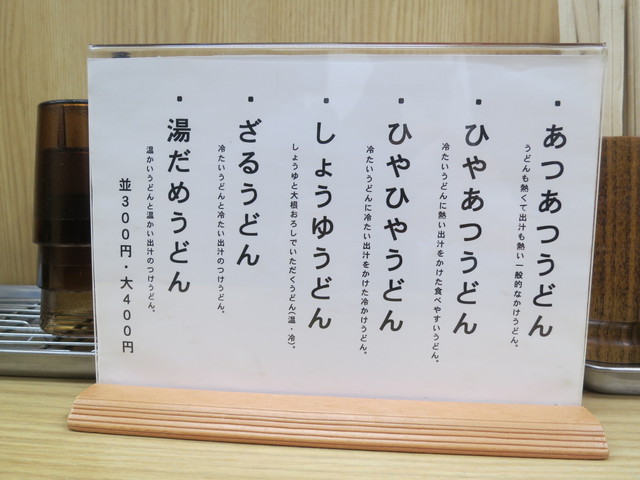 ・あつあつうどん
うどんも熱くて出汁も熱い一般的なかけうどん。
・ひやあつうどん
冷たいうどんに熱い出汁をかけた食べやすいうどん。
・ひやひやうどん
冷たいうどんに冷たい出汁をかけた冷かけうどん。
・しょうゆうどん
しょうゆと大根おろしでいただくうどん(温・冷)。
・ざるうどん
冷たいうどんと冷たい出汁のつけうどん。
・湯だめうどん
温かいうどんと温かい出汁のつけうどん。
並300円・大400円